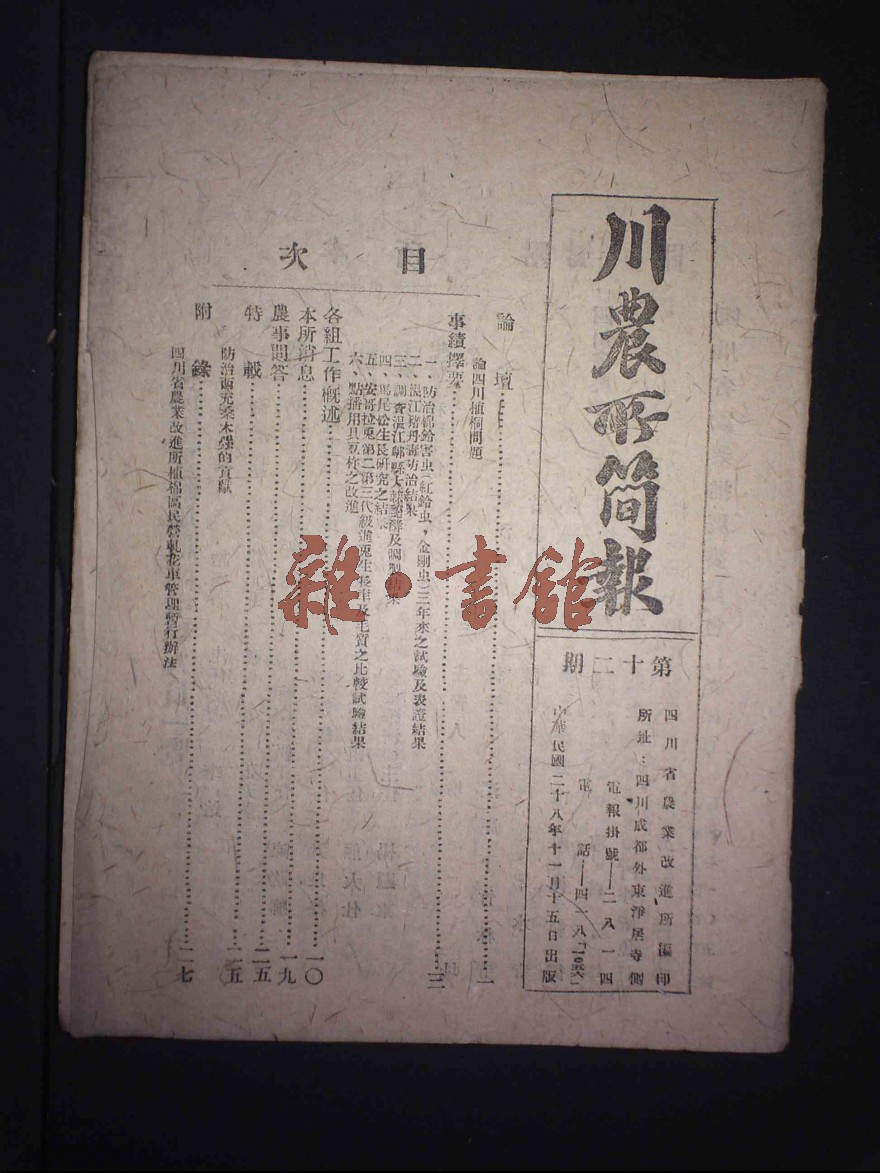 川農所簡報
第十二期
四川省農業改進所編印
所址：四川成都外東淨居寺側
電報掛號——二八一四
電話——四一八
中華民國二十八年十一月十五日出版
目次
論壇……一
論四川植桐問題
事績擇要……三
一、防治棉鈴害虫（紅鈴虫，金剛虫）三年來之試驗及表證結果
二、溫江豬丹毒防治結果
三、調查溫江郫縣大麻
四、馬尾松生長研究之結果
五、安哥拉兎第二第三代級進兎生長率及毛質之比較試驗結果
六、點播用具豆杵之改進
各組工作概述……一〇
本所消息……一九
農事問答……二五
特載……二五
防治南充桑木蝨的貢獻
附錄……二七
四川省農業改進所植棉區民營軋花車管理暫行辦法
雜·書館